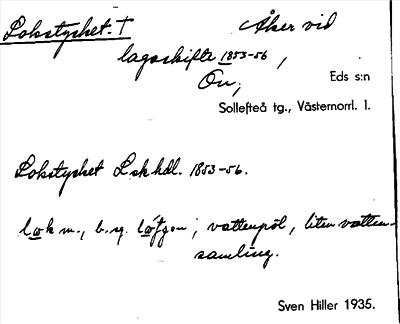 Lokstycket. † Åker vid
lagaskifte 1853-56,
Ön, Eds s:n
Sollefteå tg., Västernorrl. l.
Lokstycket Lskhdl. 1853-56.
vattenpöl, liten vatten-
samling.
Sven Hiller 1935.